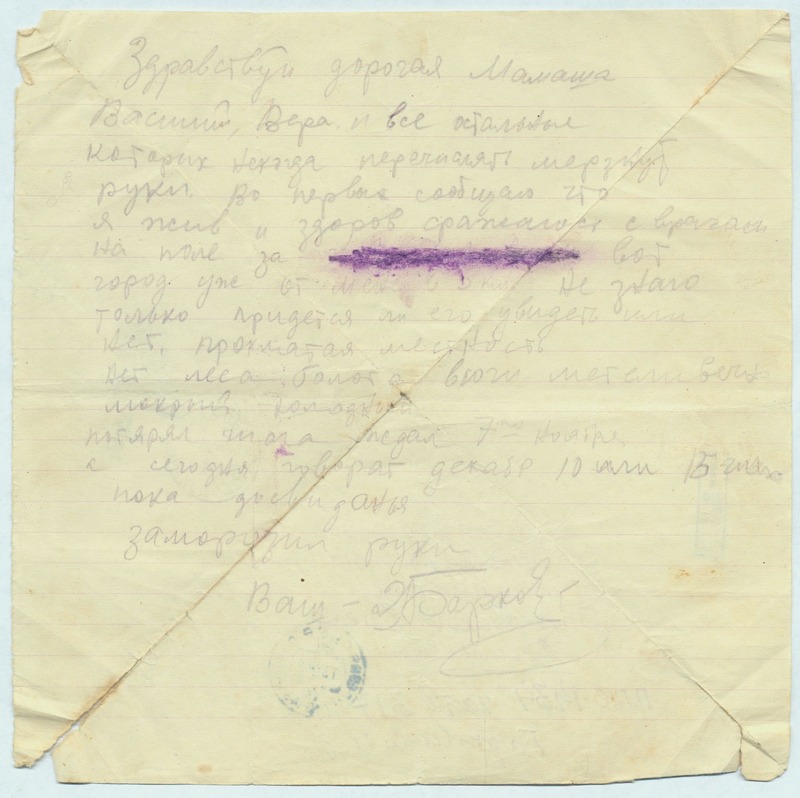 Здравствуй дорогая Мамаша
Василий, Вера и все остальные
которих некогда перечислять мерзнут
руки. Во первых сообщаю что
я жив и здоров сражаюсь с врагами
на поле за вот
город уже от меня в Не знаю
только придется ли его увидеть или
нет, проклятая местность
нет леса болота вюги метели
мокрый холодний
потерял числа ждал 7го ноября,
а сегодня говорат декабр 10 или 15 число
пока досвиданья
заморозил руки
Ваш -